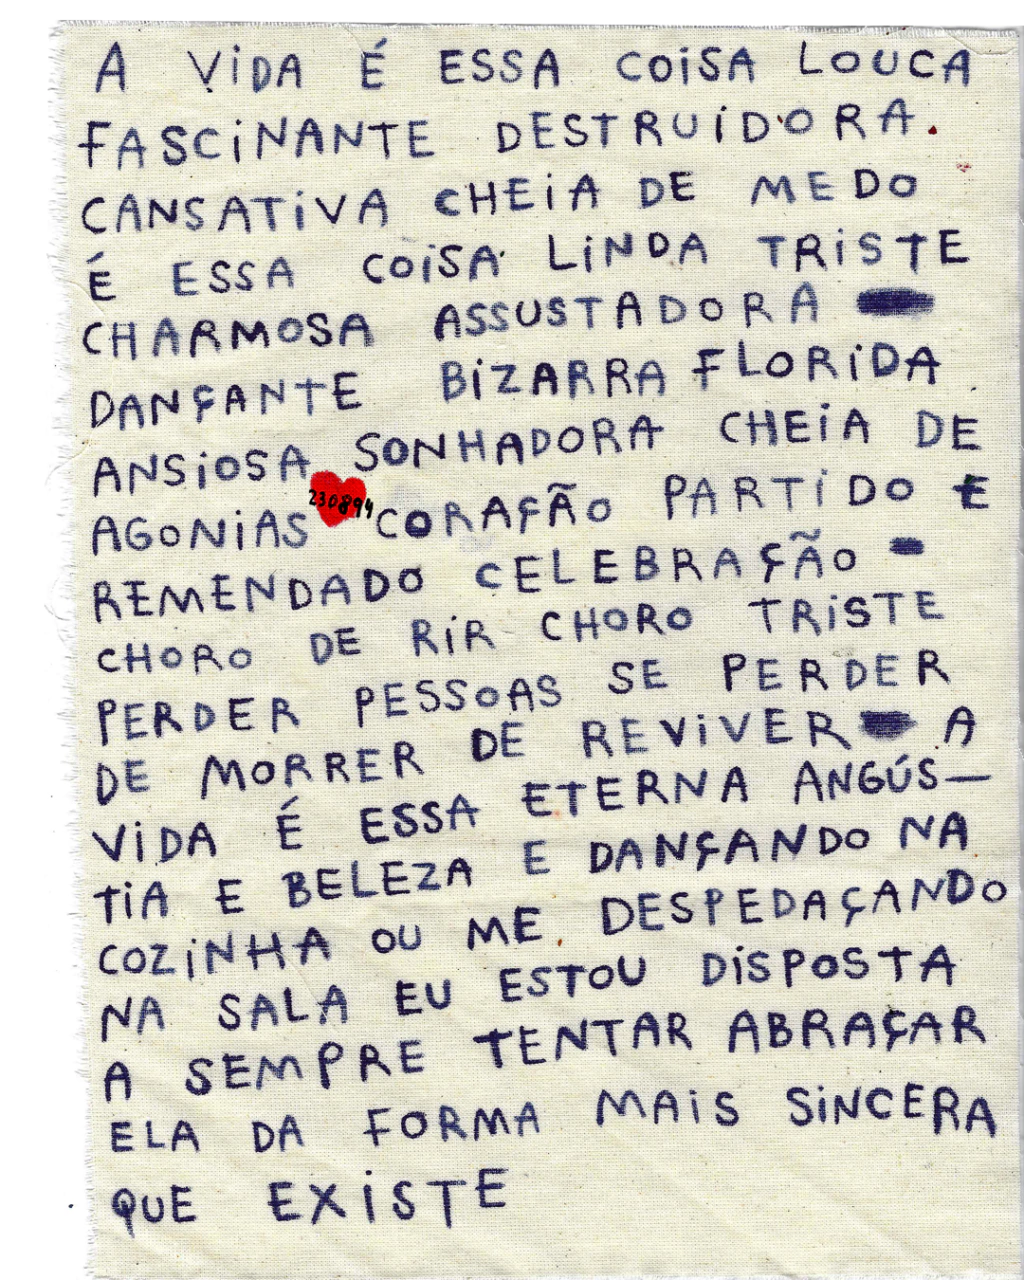 A ViDA É ESSA COiSA LOUCA
FASCiNANTE DESTRUiDORA.
CANSATiVA CHEiA DE MEDO
É ESSA COiSA LiNDA TRiSTE
CHARMOSA ASSUSTADORA
DANÇANTE BiZARRA FLORiDA
ANSiOSA SONHADORA CHEiA DE
AGONiAS 230894 CORAÇÃO PARTiDO E
REMENDADO CELEBRAÇÃO
CHORO DE RiR CHORO TRiSTE
PERDER PESSOAS SE PERDER
DE MORRER DE REViVER A
ViDA É ESSA ETERNA ANGÚS—
TiA E BELEZA E DANÇANDO NA
COZiNHA OU ME DESPEDAÇANDO
NA SALA EU ESTOU DiSPOSTA
A SEMPRE TENTAR ABRAÇAR
ELA DA FORMA MAiS SiNCERA
QUE EXiSTE